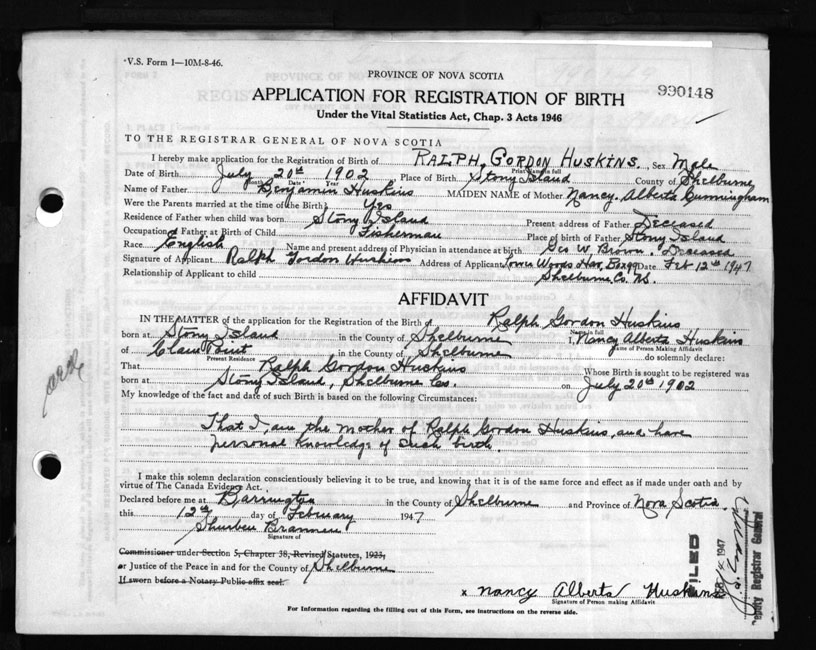 V.S. Form 1—10M-8-46.
PROVINCE OF NOVA SCOTIA
APPLICATION FOR REGISTRATION OF BIRTH
990148
Under the Vital Statistics Act, Chap. 3 Acts 1946
TO THE REGISTRAR GENERAL OF NOVA SCOTIA
I hereby make application for the Registration of Birth of RALPH, GORDON HUSKINS. Sex Male
Print Name in full
Date of Birth July 20th 1902 Place of Birth Stony Island County of Shelburne
Month Date Year
Name of Father Benjamin Huskins MAIDEN NAME of Mother Nancy Alberta Cunningham
Were the Parents married at the time of the Birth? Yes
Residence of Father when child was born Stony Island Present address of Father Deceased
Occupation of Father at Birth of Child Fisherman Place of birth of Father Stony Island
Race English Name and present address of Physician in attendance at birth Geo W. Brown. Deceased
Signature of Applicant Ralph Gordon Huskins Address of Applicant Lower Woods Har, Date Feb 12th 1947
Relationship of Applicant to child Shelburne Co. NS.
AFFIDAVIT
IN THE MATTER of the application for the Registration of the Birth of Ralph Gordon Huskins
Name in full
born at Stony Island in the County of Shelburne I, Nancy Alberta Huskins
Name of Person Making Affidavit
of Clam Point in the County of Shelburne do solemnly declare:
Present Residence
That Ralph Gordon Huskins Whose Birth is sought to be registered was
born at Stony Island, Shelburne Co. on July 20th 1902
My knowledge of the fact and date of such Birth is based on the following Circumstances:
That I am the mother of Ralph Gordon Huskins, and have
personal knowledge of such birth.
I make this solemn declaration conscientiously believing it to be true, and knowing that it is of the same force and effect as if made under oath and by
virtue of The Canada Evidence Act.
Declared before me at Barrington in the County of Shelburne and Province of Nova Scotia
this 12th day of February 1947
Signature of
Commissioner under Section 5, Chapter 38, Revised Statutes, 1923,
or Justice of the Peace in and for the County of Shelburne
If sworn before a Notary Public affix seal.
x Nancy Alberta Huskins
Signature of Person making Affidavit
For Information regarding the filling out of this Form, see instructions on the reverse side.
FILED
1947
Deputy Registrar General